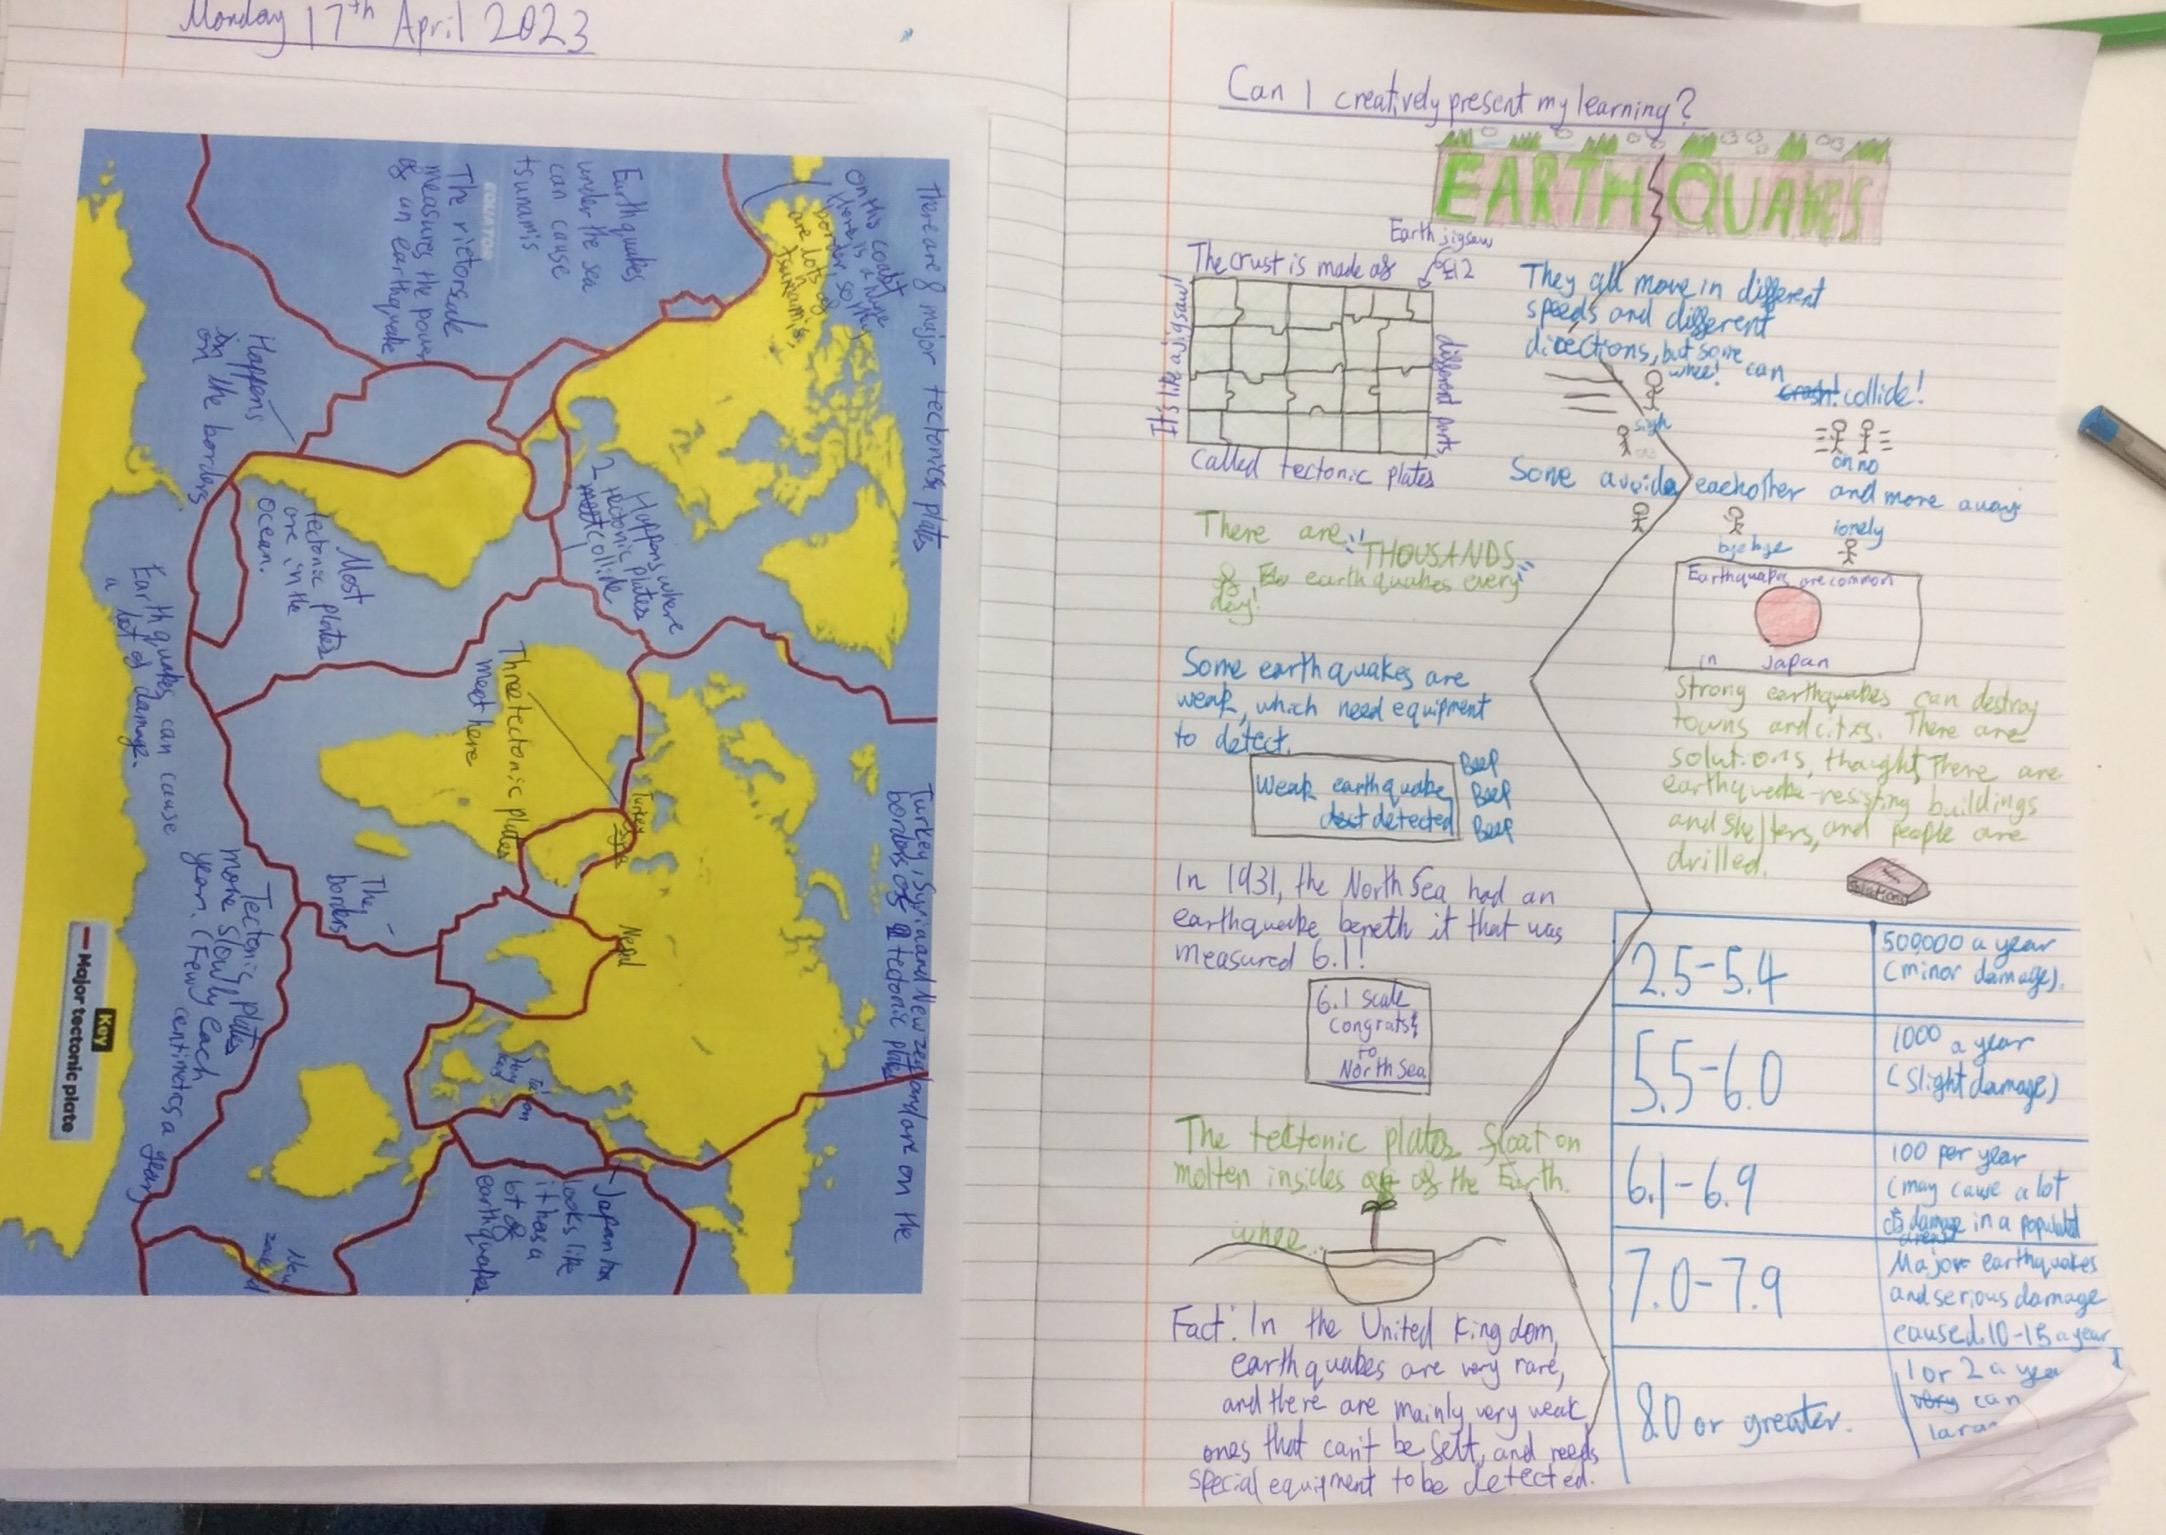 Monday 17th April 2023
There are 8 major tectonics plates
On this coast
there is a
border, so
are lots of
tsunamis
Earthquakes
under the sea
can cause
tsunamis
EQUATOR
The rictorscale
measures the power
of an earthquake
Happens
on the borders
Happens where
2 tectonic plates
collide
Most
tectonic plates
are in the
ocean.
Earthquakes can cause
a lot of damage.
Three tectonic plates
meet here
Turkey
Syria
Turkey, Syria and New zealand are on the
borders of a tectonic plate
Nepal
The
borders
Tectonic plates
move slowly each
year. (Few centimetres a year)
Japan
looks like
it has a
lot of
earthquakes
New
zealand
Key
Major tectonic plate
Can I creatively present my learning?
EARTHQUAKES
Earth jigsaw
£12
The crust is made of
different parts
called tectonic plates
It's like a jigsaw!
They all move in different
speeds and different
directions, but some can
whee!
crash! collide!
sigh
oh no
Some avoids eachother and move away
bye bye
lonely
There are "THOUSANDS"
of earthquakes every
day!
Earthquakes are common
in Japan
Some earthquakes are
weak, which need equipment
to detect.
Weak earthquake
detected
Beep
Beep
Beep
Strong earthquakes can destroy
towns and citys. There are
solutions, thought, There are
earthquake-resisting buildings
and shelters, and people are
drilled.
In 1931, the North Sea had an
earthquake beneth it that was
measured 6.1!
6.1 scale
Congrats
to
North Sea
The tectonic plates float on
molten insides of the Earth.
whee..
Fact: In the United Kingdom,
earthquakes are very rare,
and there are mainly very weak
ones that can't be felt, and needs
special equipment to be detected.
2.5-5.4
500,000 a year
(minor damage).
5.5-6.0
1000 a year
(slight damage)
6.1-6.9
100 per year
(may cause a lot
of damage in a populated
areas)
7.0-7.9
Major earthquakes
and serious damage
caused. 10-15 a year
8.0 or greater.
1 or 2 a year
very can